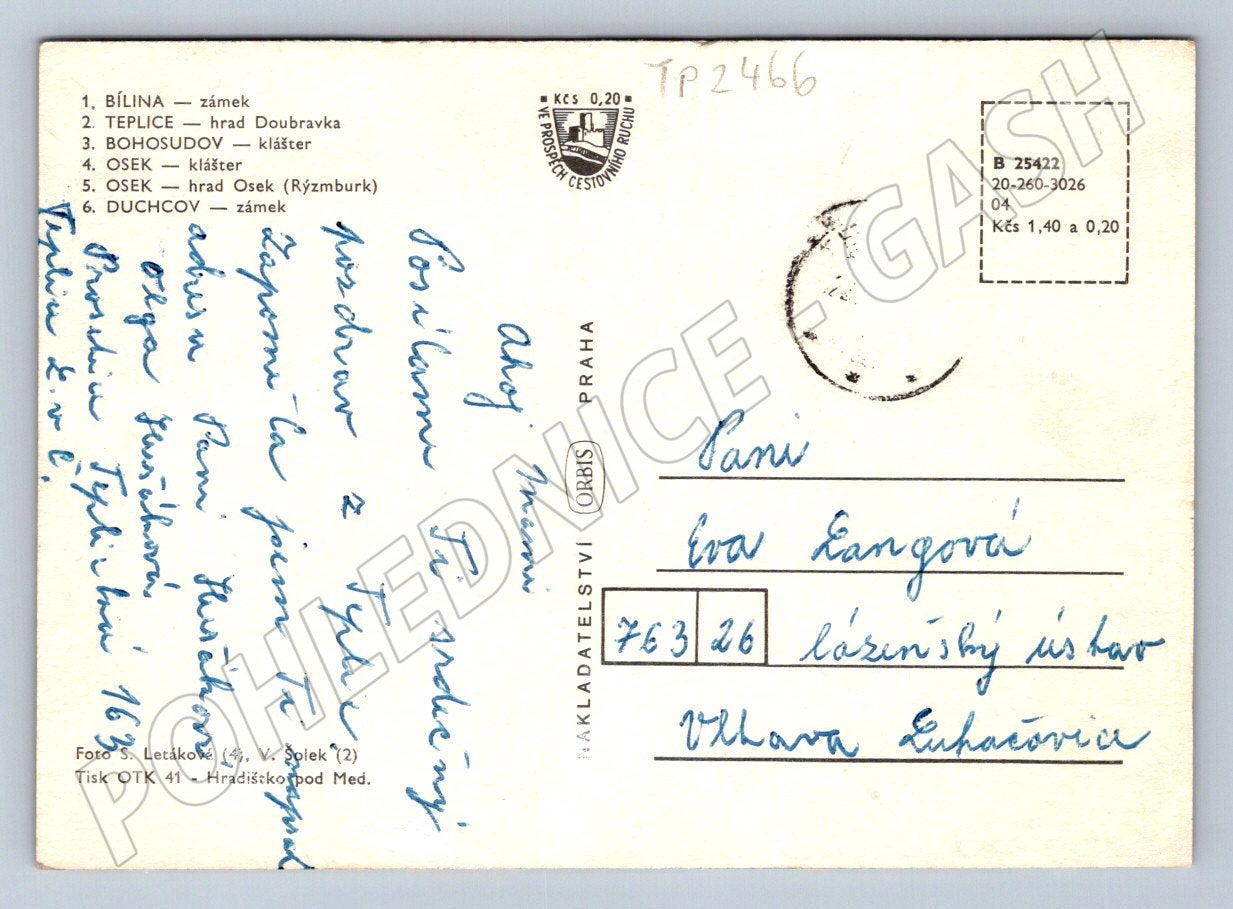 1. BÍLINA — zámek
2. TEPLICE — hrad Doubravka
3. BOHOSUDOV — klášter
4. OSEK — klášter
5. OSEK — hrad Osek (Rýzmburk)
6. DUCHCOV — zámek
Kčs 0,20
VE PROSPĚCH CESTOVNÍHO RUCHU
TP2466
B 25422
20-260-3026
04
Kčs 1,40 a 0,20
Ahoj mami
Posílam Ti srdečný
pozdrav z Teplic.
Zapomněla jsem Ti napsat
adresu Paní Husákové
Olga Husáková
Prosetice Teplická 163
Teplice L. v Č.
NAKLADATELSTVÍ ORBIS PRAHA
Paní
Eva Langová
763 26 lázeňský ústav
Vltava Luhačovice
Foto S. Letáková (4), V. Šolek (2)
Tisk OTK 41 - Hradištko pod Med.
POHLEDNICE - GASH